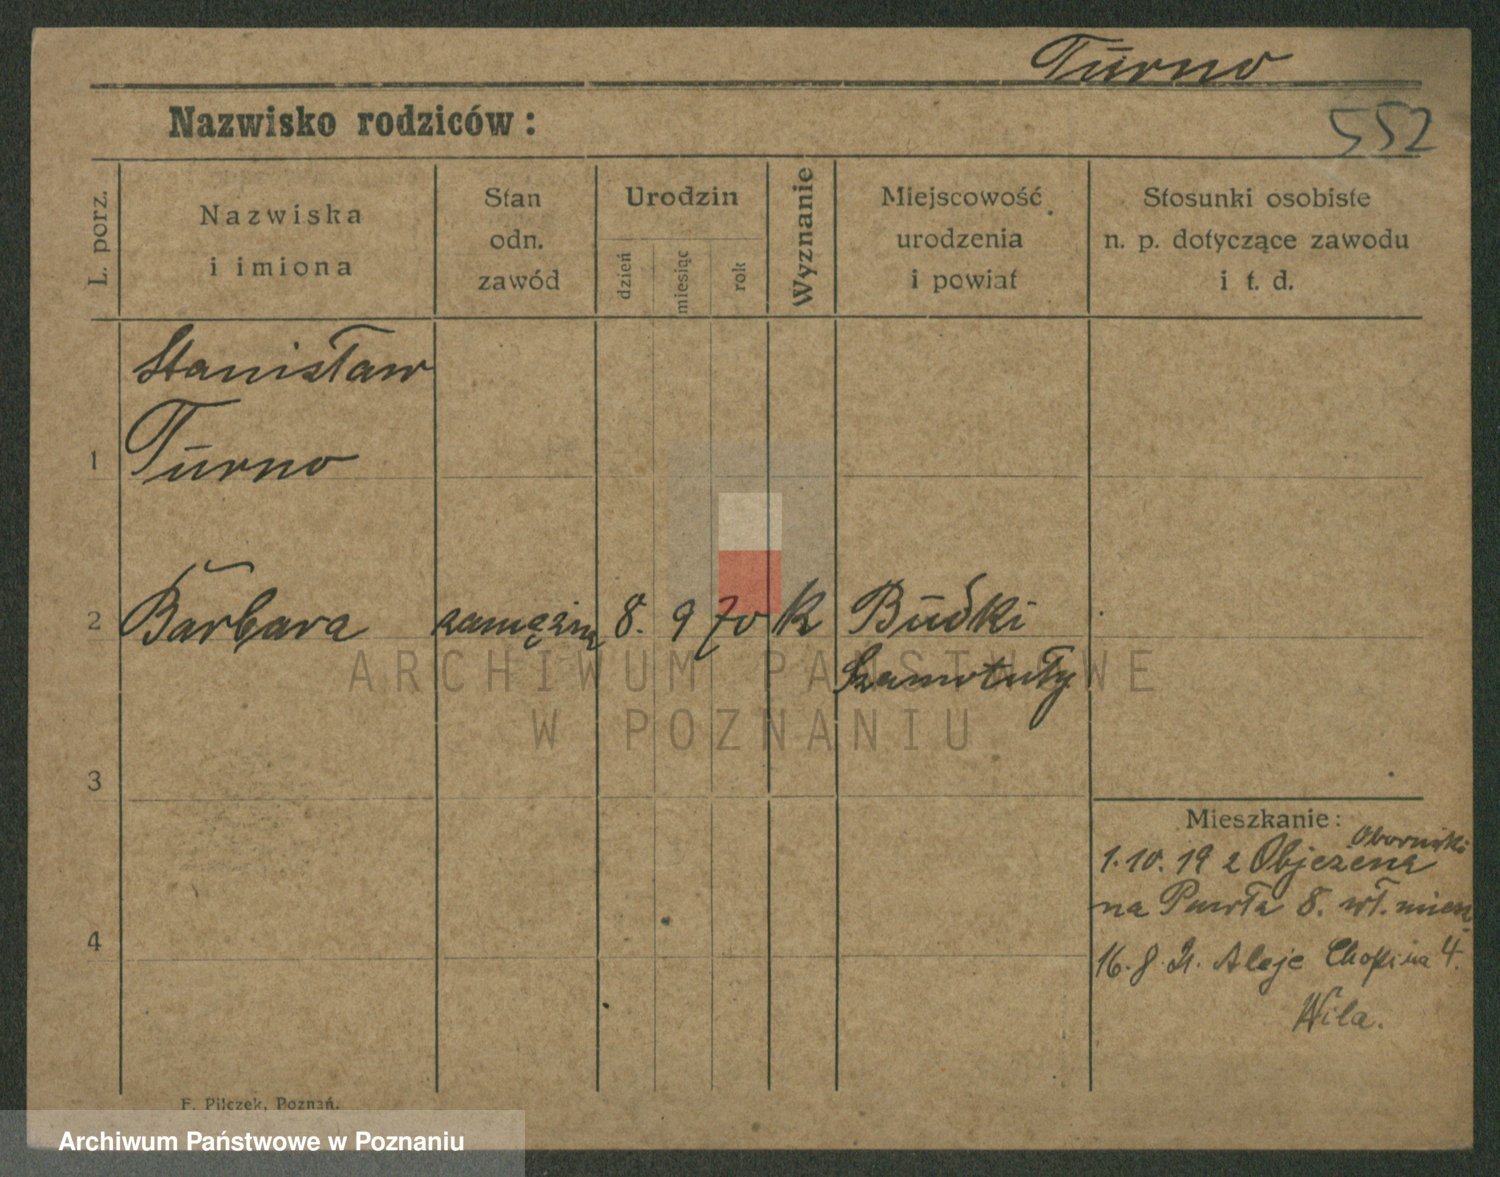 Turno
Nazwisko rodziców:
552
L. porz.
Nazwiska
i imiona
Stan
odn.
zawód
Urodzin
dzień
miesiąc
rok
Wyznanie
Miejscowość
urodzenia
i powiat
Stosunki osobiste
n. p. dotyczące zawodu
i t. d.
Stanisław
1 Turno
2 Barbara zamężna 8. 9 70 k Budki
Szamotuły
ARCHIWUM PAŃSTWOWE
W POZNANIU
3
Mieszkanie:
Obornicki
1.10.19 z Objezena
na Pawła 8. wł. miesz
4
16. 8. 21. Aleje Chopina 4.
Wila.
F. Pilczek, Poznań.
Archiwum Państwowe w Poznaniu